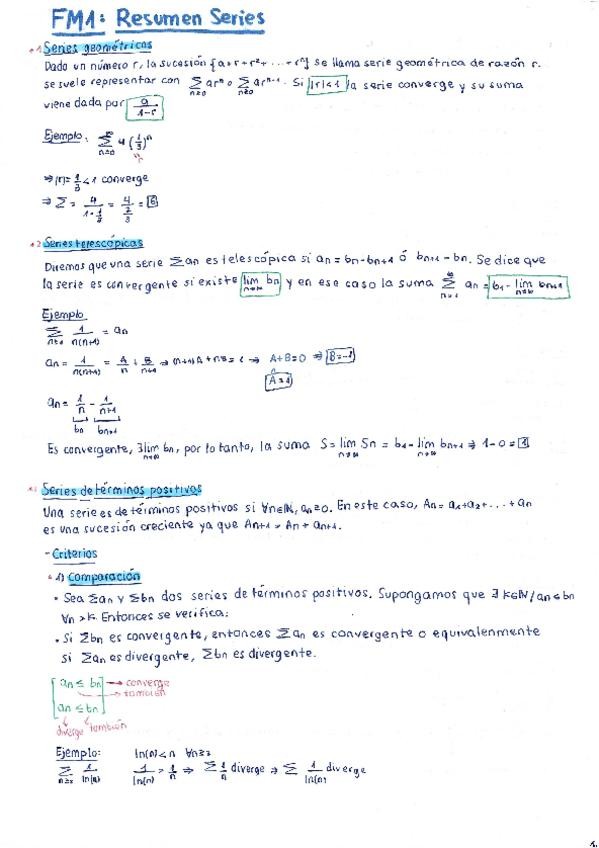 FM1: Resumen Series
*1 Series geométricas
Dado un número r, la sucesión {a+r+r²+...+rⁿ} se llama serie geométrica de razón r.
se suele representar con Σ_{n≥0} arⁿ o Σ_{n≥0} arⁿ⁻¹. Si |r|<1 la serie converge y su suma
viene dada por a/(1-r)
Ejemplo: Σ_{n=0}^{∞} 4(1/3)ⁿ
⇒ |r|=1/3<1 converge
⇒ Σ = 4/(1-1/3) = 4/(2/3) = 6
*2 Series telescópicas
Diremos que una serie Σan es telescópica si an = bn-bn+1 ó bn+1-bn. Se dice que
la serie es convergente si existe lim_{n→∞} bn y en ese caso la suma Σ_{n=1}^{∞} an = b1-lim_{n→∞} bn+1
Ejemplo
Σ_{n≥1} 1/(n(n+1)) = an
an = 1/(n(n+1)) = A/n + B/(n+1) ⇒ (n+1)A+nB=1 ⇒ A+B=0 ⇒ B=-1
A=1
an = 1/n - 1/(n+1)
bn bn+1
Es convergente, ∃lim_{n→∞} bn, por lo tanto, la suma S=lim_{n→∞} Sn = b1-lim_{n→∞} bn+1 ⇒ 1-0=1
Series de términos positivos
Una serie es de términos positivos si ∀n∈ℕ, an≥0. En este caso, An=a1+a2+...+an
es una sucesión creciente ya que An+1 = An + an+1.
- Criterios
* 1) Comparación
• Sea Σan y Σbn dos series de términos positivos. Supongamos que ∃ k∈ℕ/an≤bn
∀n>k. Entonces se verifica:
• Si Σbn es convergente, entonces Σan es convergente o equivalenmente
si Σan es divergente, Σbn es divergente.
an ≤ bn → converge
→ también
an ≤ bn
diverge también
Ejemplo: ln(n)<n ∀n≥2
Σ_{n≥2} 1/ln(n) 1/ln(n) > 1/n ⇒ Σ 1/n diverge ⇒ Σ 1/ln(n) diverge
1.